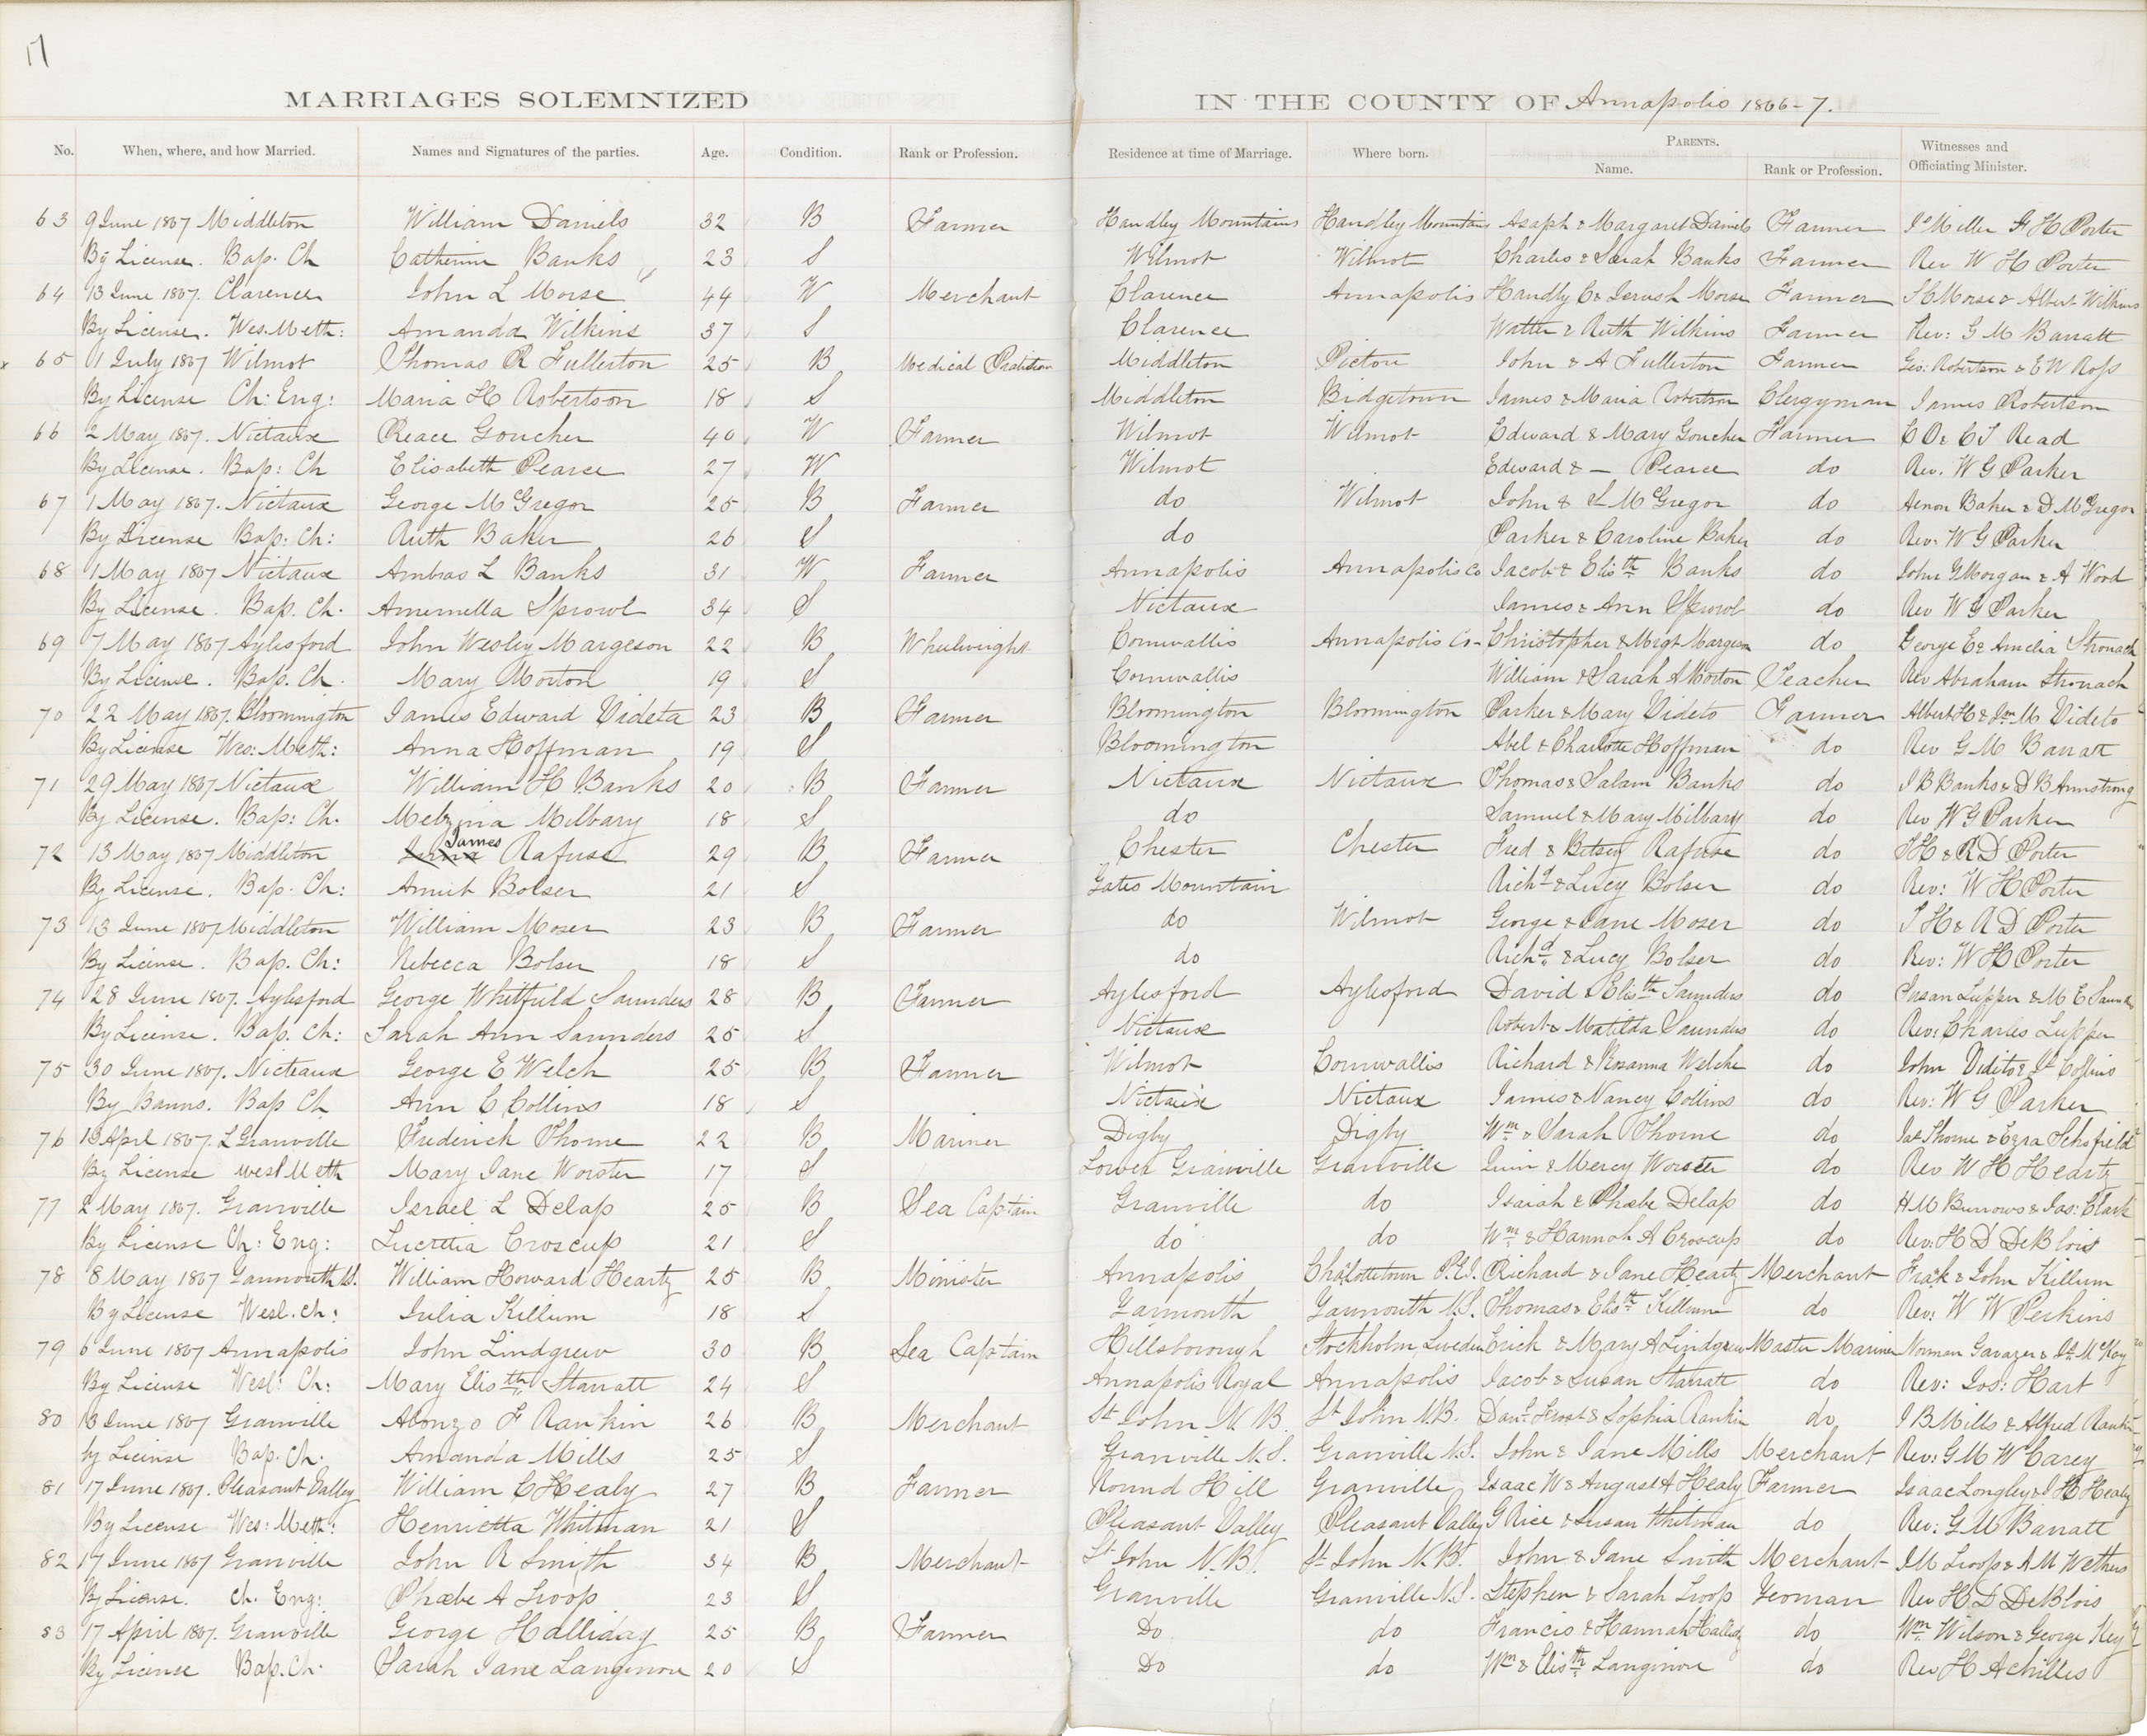 17
MARRIAGES SOLEMNIZED IN THE COUNTY OF Annapolis 1866-7.
No. When, where, and how Married. Names and Signatures of the parties. Age. Condition. Rank or Profession. Residence at time of Marriage. Where born. PARENTS. Name. Rank or Profession. Witnesses and Officiating Minister.
63 9 June 1867 Middleton William Daniels 32 B Farmer Handley Mountains Handley Mountains Asaph & Margaret Daniels Farmer Js Miller H H Porter
By License. Bap. Ch Catherine Banks 23 S Wilmot Wilmot Charles & Sarah Banks Farmer Rev W H Porter
64 13 June 1867. Clarence John L Morse 44 W Merchant Clarence Annapolis Handly C & Jerush Morse Farmer S C Morse & Albert Wilkins
By License. Wes. Meth: Amanda Wilkins 37 S Clarence Walter & Ruth Wilkins Farmer Rev: G M Barratt
x 65 1 July 1867 Wilmot Thomas R Fullerton 25 B Medical Practition Middleton Pictou John & A Fullerton Farmer Geo: Robertson & E W Ross
By License Ch: Eng: Maria H Robertson 18 S Middleton Bridgetown James & Maria Robertson Clergyman James Robertson
66 2 May 1867. Nictaux Reace Goucher 40 W Farmer Wilmot Wilmot Edward & Mary Goucher Farmer C D & C S Read
By License. Bap: Ch Elisabeth Pearce 27 W Wilmot Edward & — Pearce do Rev. W G Parker
67 1 May 1867. Nictaux George McGregor 25 B Farmer do Wilmot John & L McGregor do Aenon Baker & D McGregor
By License Bap: Ch: Ruth Baker 26 S do Parker & Caroline Baker do Rev: W G Parker
68 1 May 1867 Nictaux Ambras L Banks 31 W Farmer Annapolis Annapolis Co Jacob & Elisth Banks do John G Morgan & A Wood
By License. Bap. Ch. Amermella Sprowl 34 S Nictaux James & Ann Sprowl do Rev W G Parker
69 7 May 1867 Aylesford John Wesley Margeson 22 B Wheelwright Cornwallis Annapolis Co- Christopher & Mrgt Margeson do George E & Amelia Stronach
By License. Bap. Ch. Mary Morton 19 S Cornwallis William & Sarah A Morton Teacher Rev Abraham Stronach
70 22 May 1867. Bloomington James Edward Videta 23 B Farmer Bloomington Bloomington Parker & Mary Videto Farmer Albert H & Jm M Videto
By License Wes: Meth: Anna Hoffman 19 S Bloomington Abel & Charlotte Hoffman do Rev G M Barratt
71 29 May 1867 Nictaux William H Banks 20 B Farmer Nictaux Nictaux Thomas & Salam Banks do J B Banks & D B Armstrong
By License. Bap: Ch. Melzina Milbary 18 S do Samuel & Mary Milbary do Rev W G Parker
72 13 May 1867 Middleton James Rafuse 29 B Farmer Chester Chester Fred & Betsey Rafuse do T H & R D Porter
By License. Bap. Ch: Amut Bolser 21 S Gates Mountain Richd & Lucy Bolser do Rev: W H Porter
73 13 June 1867 Middleton William Moser 23 B Farmer do Wilmot George & Jane Moser do T H & A D Porter
By License. Bap. Ch: Rebecca Bolser 18 S do Richd & Lucy Bolser do Rev: W H Porter
74 28 June 1867. Aylesford George Whitfield Saunders 28 B Farmer Aylesford Aylesford David & Elisth Saunders do Susan Lupper & M E Saunders
By License. Bap. Ch: Sarah Ann Saunders 25 S Nictaux Robert & Matilda Saunders do Rev: Charles Lupper
75 30 June 1867. Nicteaux George E Welch 25 B Farmer Wilmot Cornwallis Richard & Rosanna Welche do John Videto & Js Collins
By Banns. Bap Ch Ann C Collins 18 S Nictaux Nictaux James & Nancy Collins do Rev: W G Parker
76 18 April 1867. L Granville Frederick Thorne 22 B Mariner Digby Digby Wm & Sarah Thorne do Jas Thorne & Ezra Schofield
By License west Meth Mary Jane Worster 17 S Lower Granville Granville & Mercy Worster do Rev W H Heartz
77 2 May 1867. Granville Israel L Delap 25 B Sea Captain Granville do Isaiah & Phoebe Delap do H M Burrows & Jas: Clark
By License Ch: Eng: Lucretia Croscup 21 S do do Wm & Hannah A Croscup do Rev: H D DeBlois
78 8 May 1867 Yarmouth N.S. William Howard Heartz 25 B Minister Annapolis Charlottetown P.E.I. Richard & Jane Heartz Merchant Frak & John Killum
By License Wesl. Ch: Julia Killum 18 S Yarmouth Yarmouth N.S. Thomas & Elisth Killum do Rev: W W Perkins
79 6 June 1867 Annapolis John Lindgrew 30 B Sea Captain Hillsborough Stockholm Sweden Erick & Mary A Lindgrew Master Mariner Norman Gavazer & Dr McKay
By License Wesl: Ch: Mary Elisth Starratt 24 S Annapolis Royal Annapolis Jacob & Susan Starratt do Rev: Jos: Hart
80 13 June 1867 Granville Alonzo F Rankin 26 B Merchant St John N.B. St John N.B. Danl Frost & Sophia Rankin do J B Mills & Alfred Rankin
by License Bap. Ch. Amanda Mills 25 S Granville N.S. Granville N.S. John & Jane Mills Merchant Rev: G M W Carey
81 17 June 1867. Pleasant Valley William C Healy 27 B Farmer Round Hill Granville Isaac W & August A Healy Farmer Isaac Longley & J H Healy
By License Wes: Meth: Henrietta Whitman 21 S Pleasant Valley Pleasant Valley G Rice & Susan Whitman do Rev: G M Barratt
82 17 June 1867 Granville John R Smith 34 B Merchant St John N.B. St John N.B. John & Jane Smith Merchant J M Troop & A M Wethers
By License. Ch. Eng: Phoebe A Troop 23 S Granville Granville N.S. Stephen & Sarah Troop Yeoman Rev H D DeBlois
83 17 April 1867. Granville George Halliday 25 B Farmer Do do Francis & Hannah Halliday do Wm Wilson & George Key
By License Bap. Ch. Sarah Jane Langmore 20 S Do do Wm & Elisth Langmore do Rev H Achilles